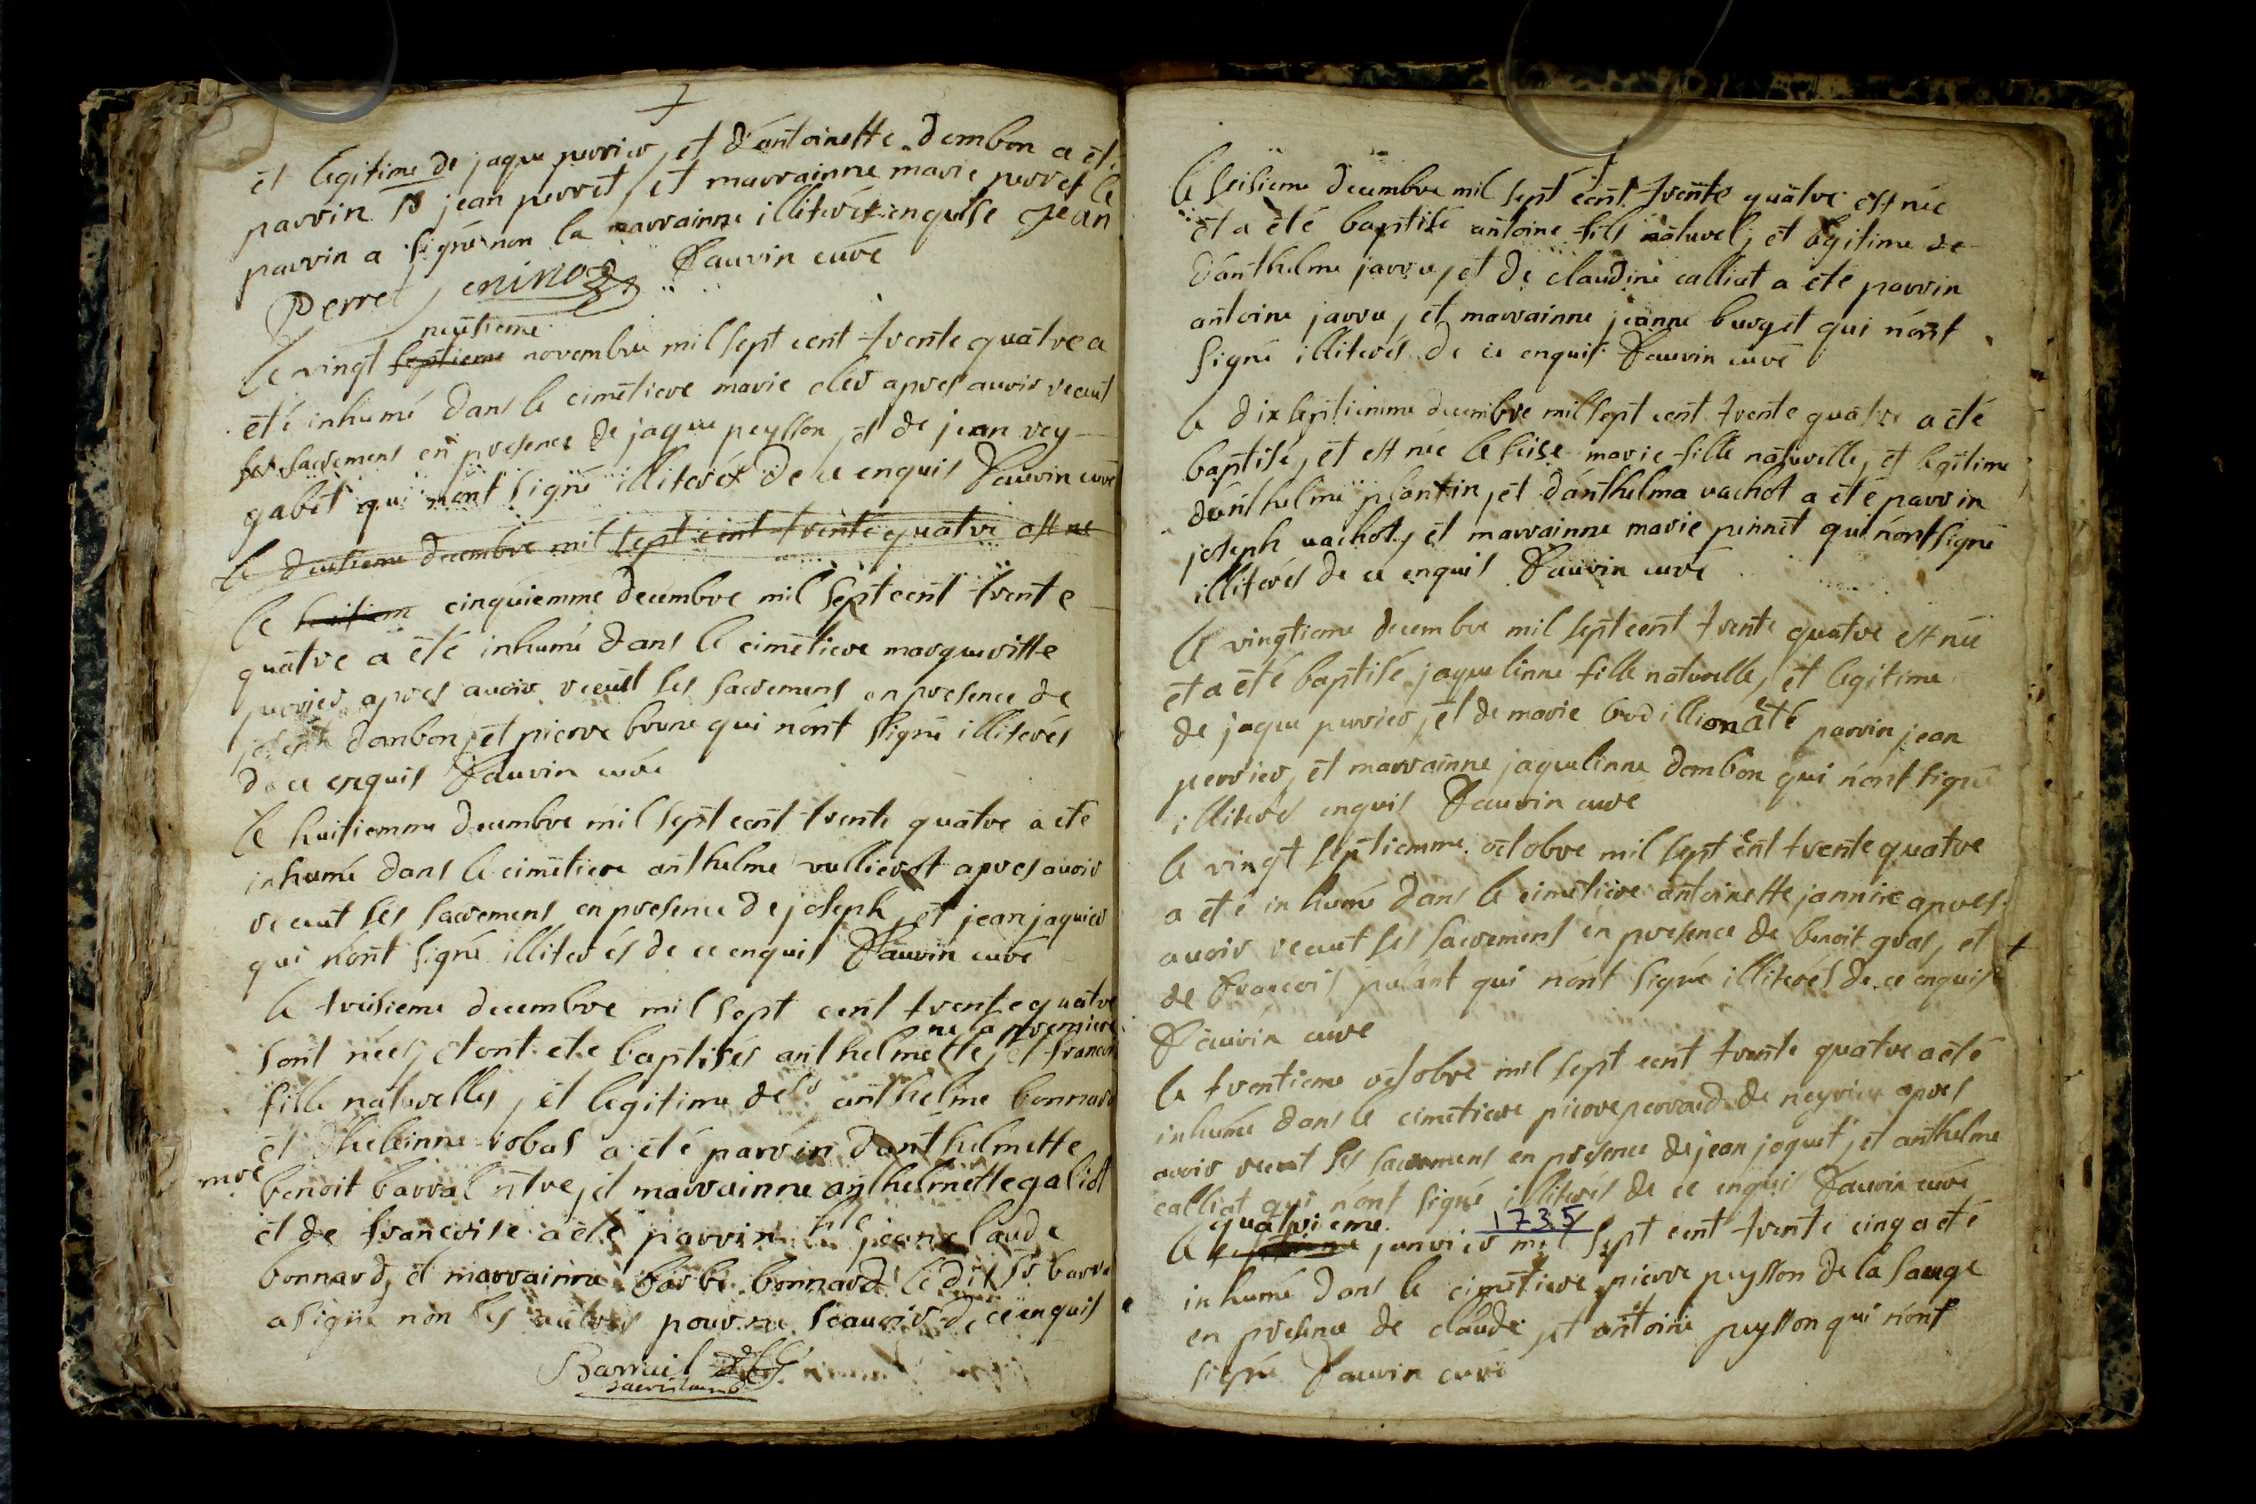 et legitime de jaque perrier, et d'antoinette dembon a eté
parrin Sr jean perret, et marrainne marie perret le
parrin a signé non la marrainne illiterée enquise Jean
Perret Sauvin curé
neufieme
le vingt septieme novembre mil sept cent trente quatre a
eté inhumé dans le cimetiere marie cler apres auoir receut
ses sacremens en presence de jaque peysson, et de jean rey
gabet qui n'ont signé illiterés de ce enquis Sauvin curé
le deusieme decembre mil sept cent trente quatre est ne
le huitiem cinquiemme decembre mil sept cent trente
quatre a eté inhumé dans le cimetiere margueritte
perrier apres auoir receut ses sacremens en presence de
joseph dombon, et pierre brune qui n'ont signé illiterés
de ce enquis Sauvin curé
le huitiemme decembre mil sept cent trente quatre a eté
inhumé dans le cimetiere anthelme vullierot apres auoir
receut ses sacremens en presence de joseph, et jean jaquier
qui n'ont signé illiterés de ce enquis Sauvin curé
le tresieme decembre mil sept cent trente quatre
né a premiere
sont nées, et ont ete baptisés anthelmette, et francoi
fille naturelles, et legitime de sr anthelme bonnard
et robas a eté parrin d'anthelmette
mre benoit barral ntre, et marrainne anthelmette galiot
et de francoise a eté parrin jean claude
bonnard, et marrainne barbe bonnard le dit Sr barra
a signé non les autres pour ne scauoir de ce enquis
Barruil
le seisieme decembre mil sept cent trente quatre est née
et a eté baptisé antoine fils naturel, et legitime de
d'anthelme jarru, et de claudine calliat a eté parrin
antoine jarru, et marrainne jeanne burget qui n'ont
signé illiterés de ce enquis Sauvin curé
le dixseptiemme decembre mil sept cent trente quatre a eté
baptisé, et est née le seise marie fille naturelle, et legitime
d'anthelme plantin, et d'anthelma vachot a eté parrin
joseph vachot, et marrainne marie pinnet qui n'ont signé
illiterés de ce enquis Sauvin curé
le vingtieme decembre mil sept cent trente quatre est née
et a eté baptisé jaquelinne fille naturelle, et legitime
de jaque perrier, et de marie brodillion a eté parrin jean
perrier, et marrainne jaquelinne dombon qui n'ont signé
illiterés enquis Sauvin curé
le vingt septiemme octobre mil sept cent trente quatre
a eté inhumé dans le cimetiere antoinette jannire apres
auoir receut ses sacremens en presence de benoit gras, et
de francois pulant qui n'ont signé illiterés de ce enquis
Sauvin curé
le trentieme octobre mil sept cent trente quatre a eté
inhumé dans le cimetiere pierre perraud de neyrieu apres
auoir receut ses sacremens en presence de jean joquet, et anthelme
calliat qui n'ont signé illiterés de ce enquis Sauvin curé
quatrieme 1735
le janvier mil sept cent trente cinq a eté
inhumé dans le cimetiere pierre peysson de la sauge
en presence de claude, et antoine peysson qui n'ont
signé Sauvin curé